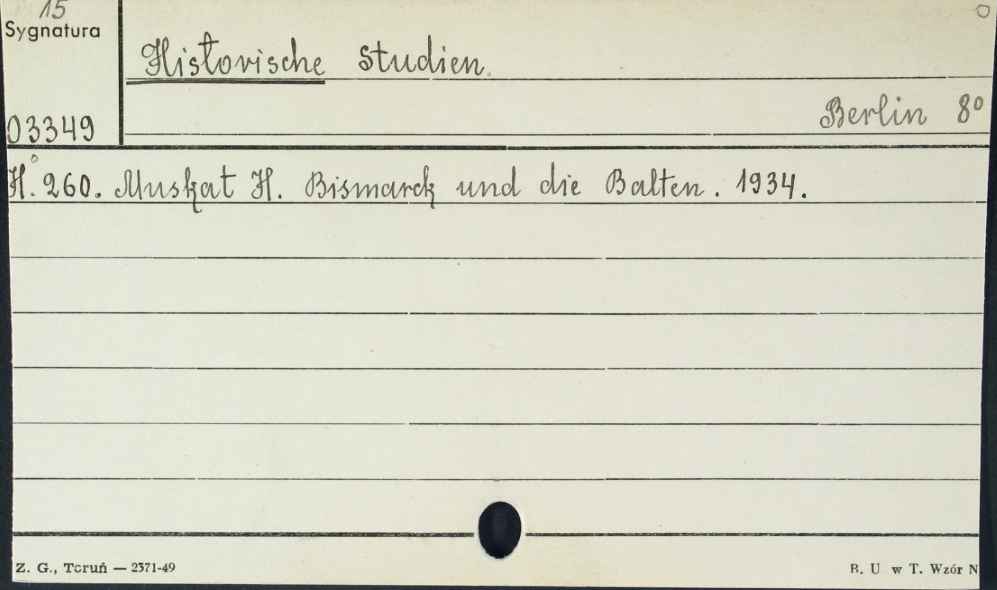 15
Sygnatura
Historische Studien.
Berlin 8°
03349
H. 260. Muskat H. Bismarck und die Balten. 1934.
Z. G., Toruń — 2371-49
B. U w T. Wzór N